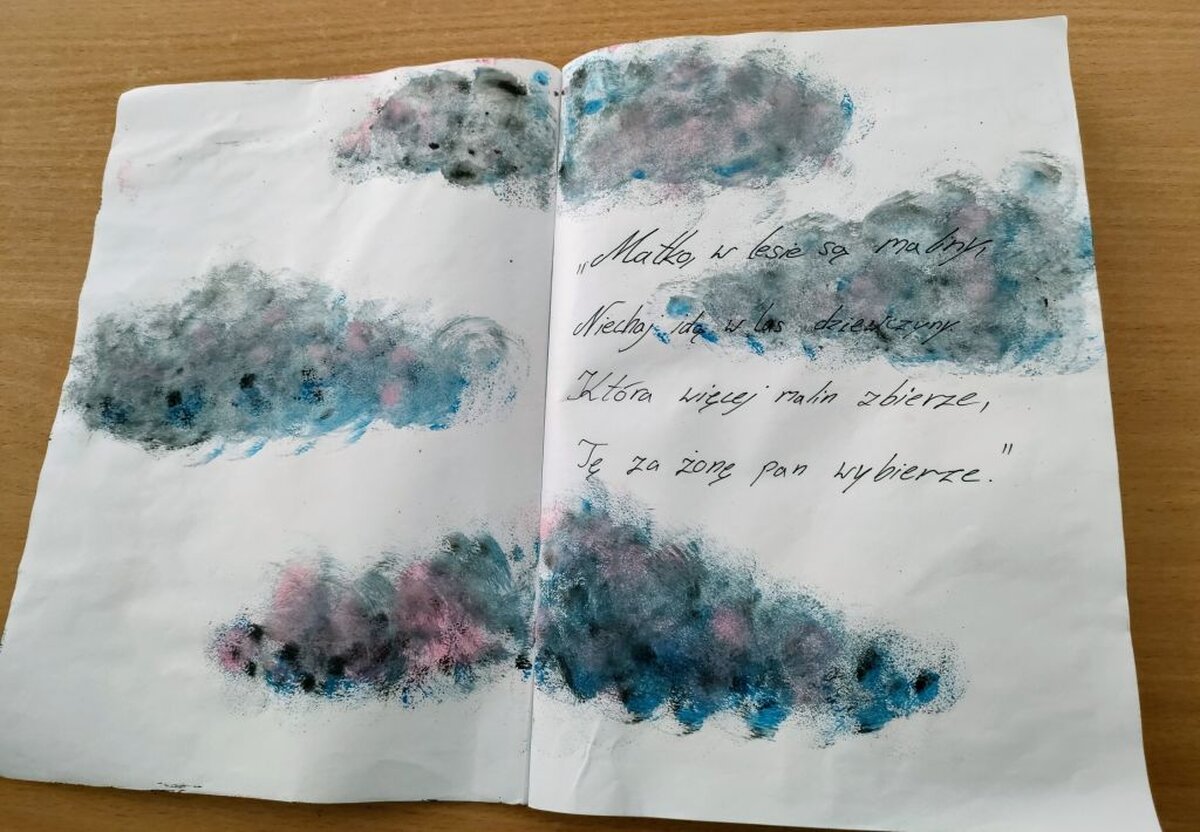 „Matko, w lesie są maliny,
Niechaj idą w las dziewczyny
Która więcej malin zbierze,
Tę za żonę pan wybierze."